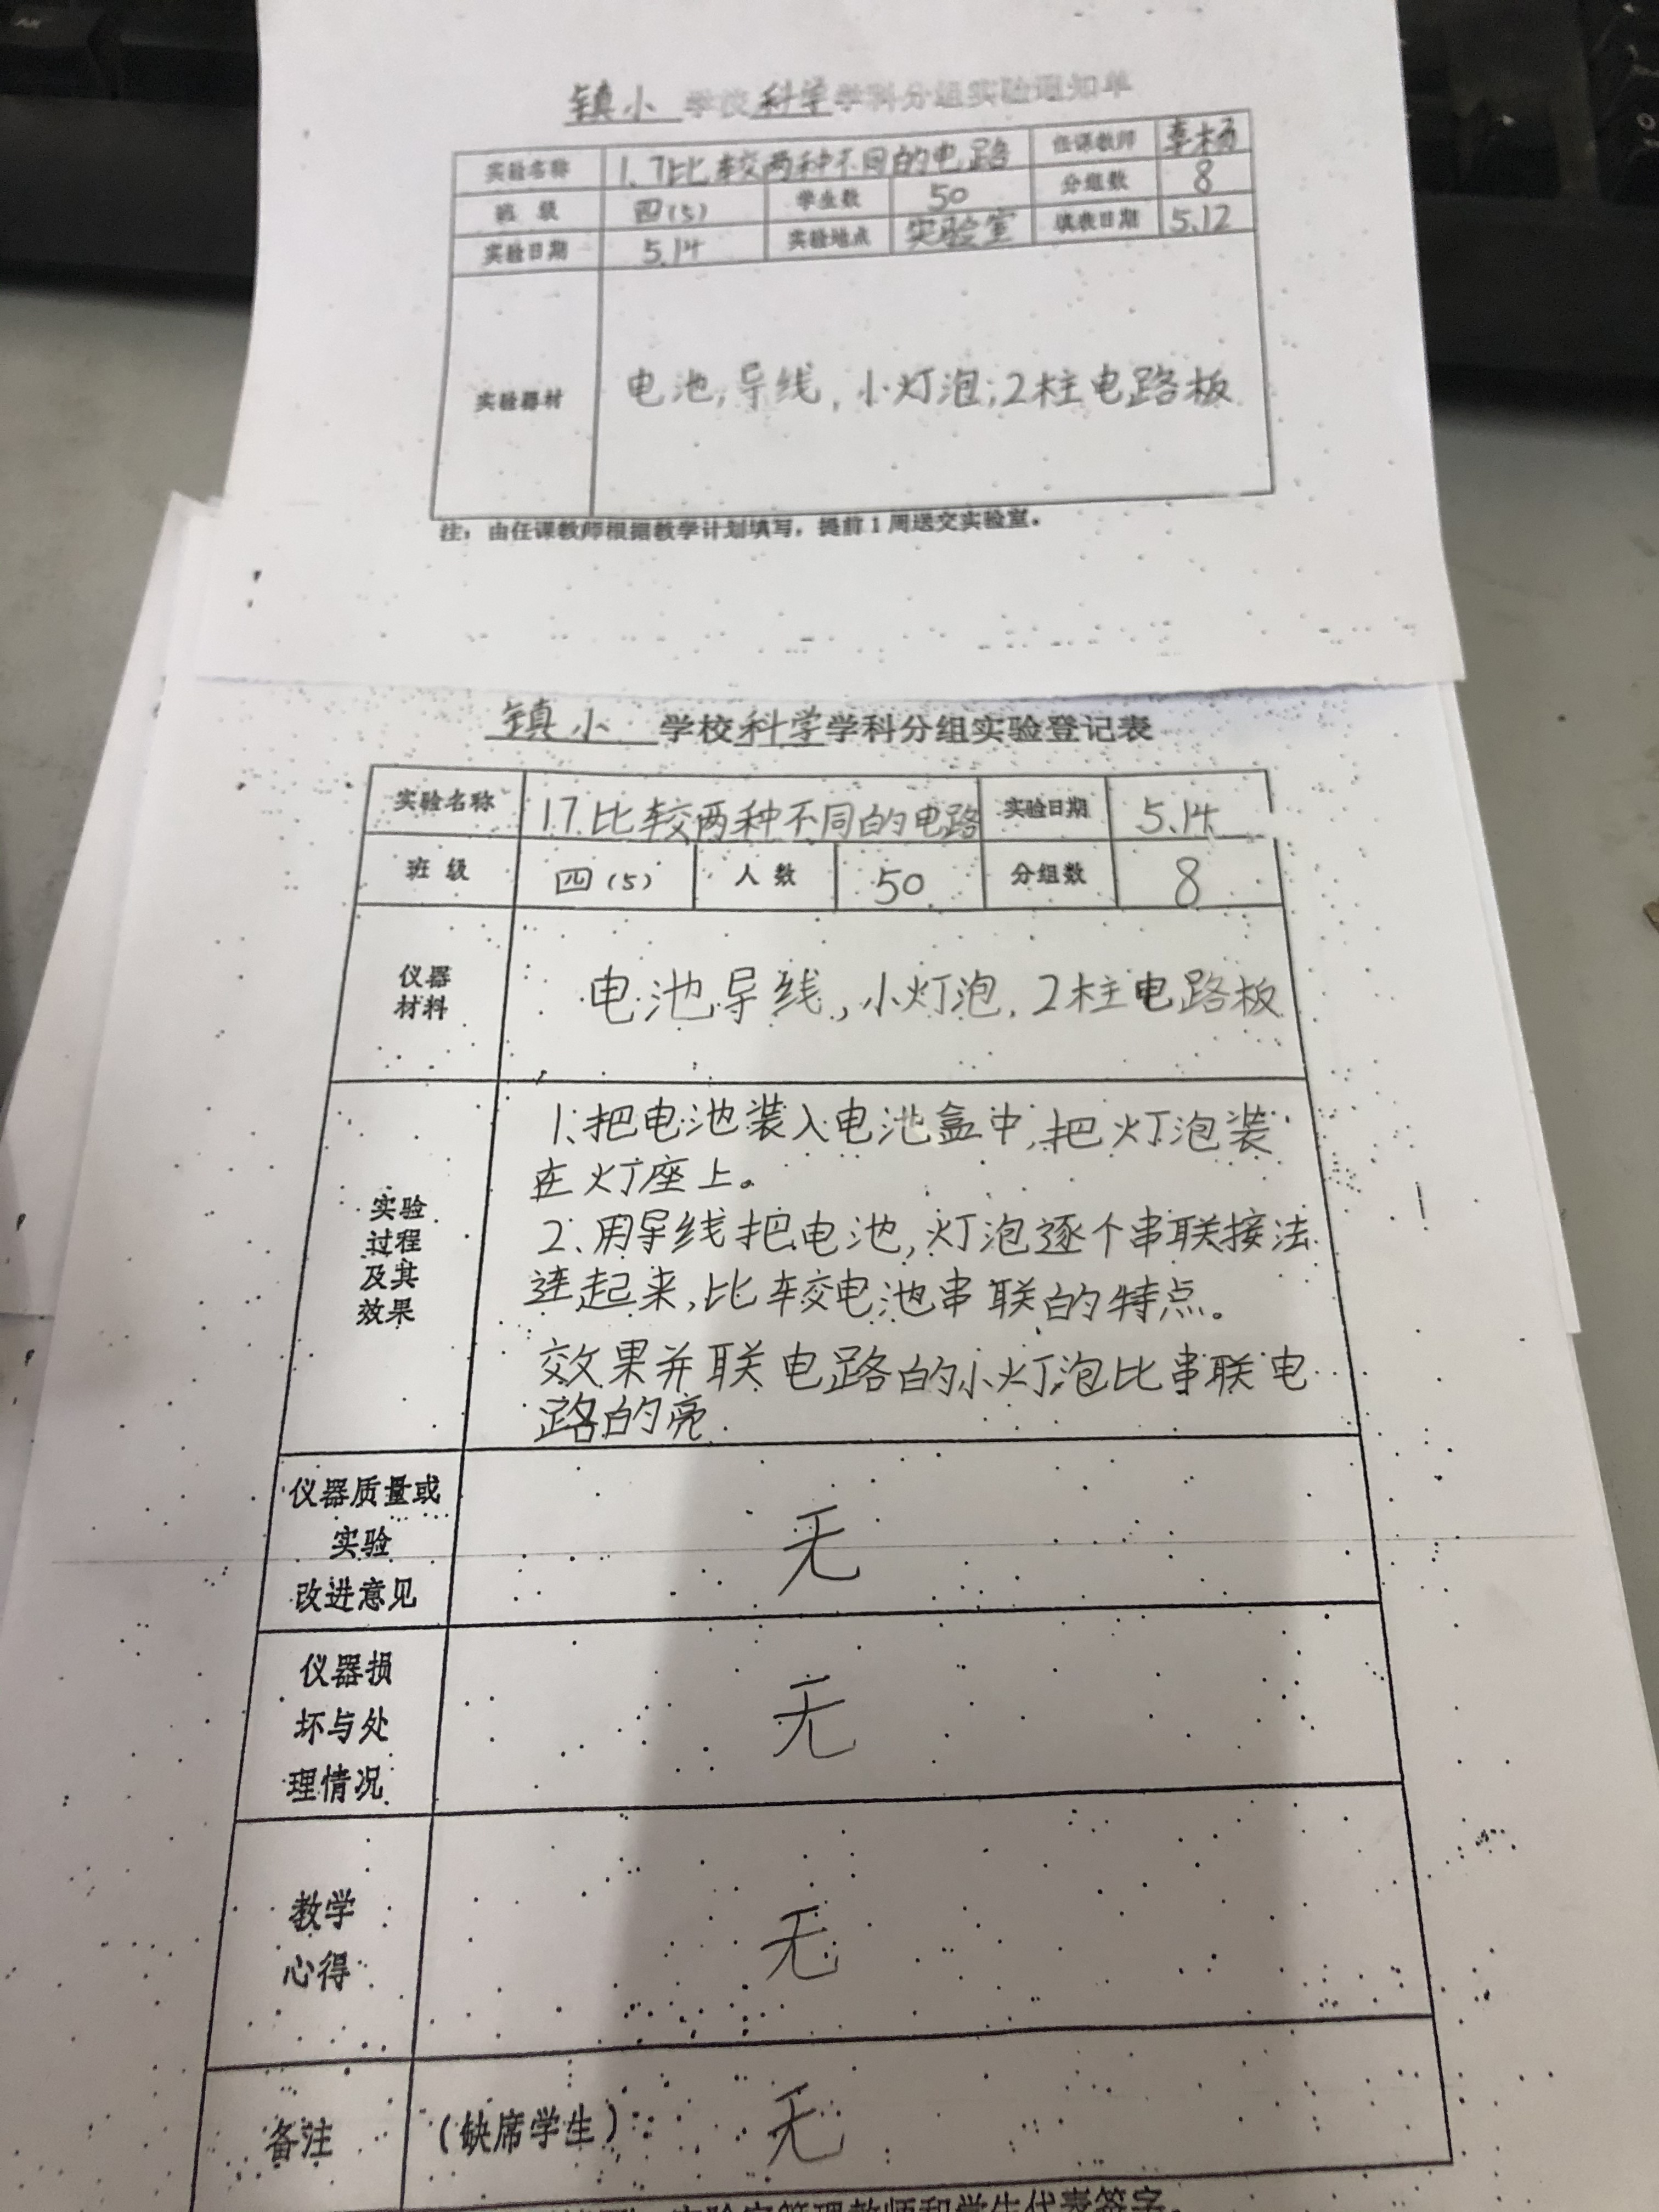 镇小 学校科学学科分组实验通知单
实验名称 1.7比较两种不同的电路 任课教师
班 级 四(5) 学生数 50 分组数 8
实验日期 5.14 实验地点 实验室 填表日期 5.12
实验器材 电池,导线,小灯泡,2柱电路板
注：由任课教师根据教学计划填写，提前1周送交实验室。
镇小 学校科学学科分组实验登记表
实验名称 17.比较两种不同的电路 实验日期 5.14
班 级 四(5) 人 数 50 分组数 8
仪器
材料
电池导线,小灯泡,2柱电路板
实验
过程
及其
效果
1、把电池装入电池盒中,把灯泡装
在灯座上。
2、用导线把电池,灯泡逐个串联接法
连起来,比较电池串联的特点。
效果并联电路的小灯泡比串联电
路的亮.
仪器质量或
实验
改进意见
无
仪器损
坏与处
理情况
无
教学
心得
无
备注 (缺席学生): 无
实验室管理教师和学生代表签字。